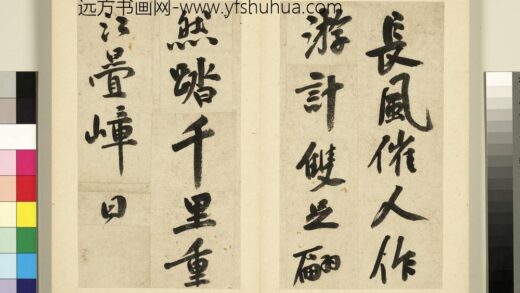 远方书画网-www.yfshuhua.com
長風催人作
游計雙足翩
然踏千里重
江疊嶂日